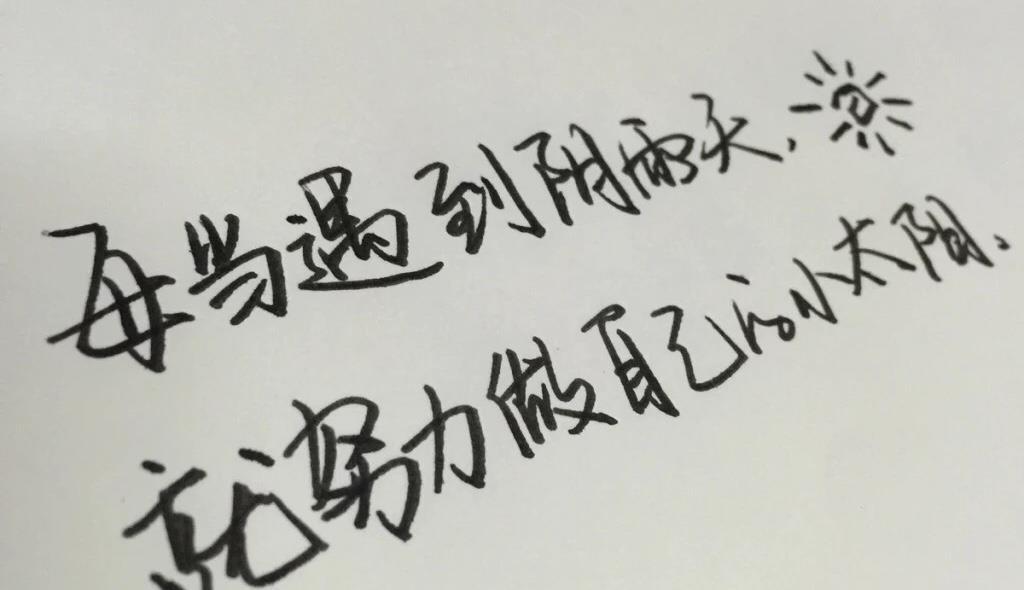 每当遇到阴雨天，
就努力做自己的小太阳。